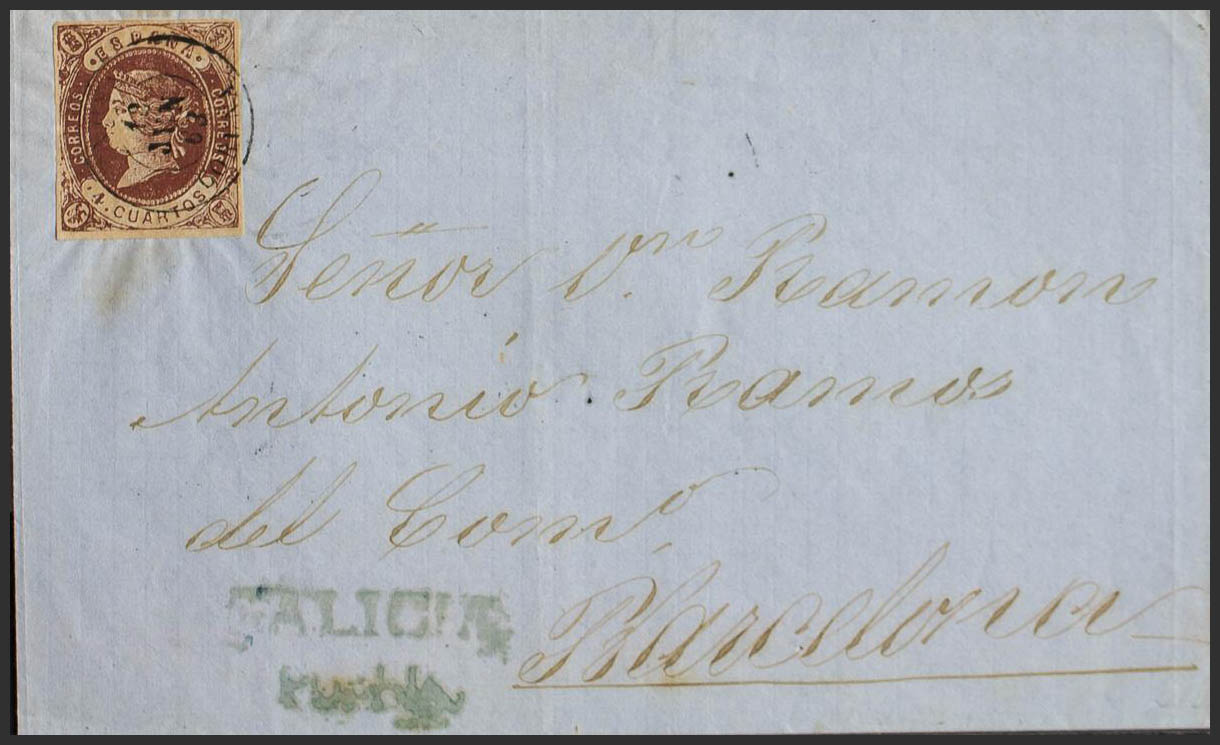 · ESPAÑA ·
CORREOS
CORREOS
4 . CUARTOS
JUN
63
Señor Dn. Ramon
Antonio Ramos
del Como.
GALICIA
Puebla
Barcelona